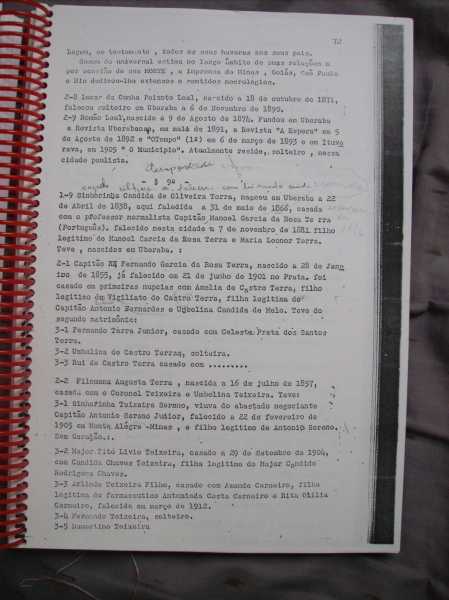 72
Legou, em testamento, todos os seus haveres aos seus pais.
Gosou de universal estima no largo âmbito de suas relações e
por ocasião de sua MORTE, a imprensa de Minas, Goiás, São Paulo
e Rio dedicou-lhe extensos e sentidos necrológios.
2-8 Lucas da Cunha Peixoto Leal, nascido a 18 de outubro de 1871,
faleceu solteiro em Uberaba a 6 de Novembro de 1899.
2-9 Romão Leal, nascido a 9 de Agosto de 1874. Fundou em Uberaba
a Revista Uberabense, em maio de 1891, a Revista "A Espera" em 5
de Agosto de 1892 e "OTempo" (1º) em 6 de março de 1893 e em Ituve
rava, em 1905 " O Município". Atualmente reside, solteiro, nessa
cidade paulista.
- § 9º -
1-9 Sinharinha Candida de Oliveira Terra, nasceu em Uberaba a 22
de Abril de 1838, aqui falecida a 31 de maio de 1866, casada
com o professor normalista Capitão Manoel Garcia da Rosa Te rra
(Português), falecido nesta cidade a 7 de novembro de 1881 filho
legítimo de Manoel Garcia da Rosa Terra e Maria Leonor Terra.
Teve, nascidos em Uberaba, :
2-1 Capitão Fernando Garcia da Rosa Terra, nascido a 28 de Jane
iro de 1855, já falecido em 21 de junho de 1901 no Prata. foi
casado em primeiras nupcias com Amelia de Castro Terra, filho
legítimo de Vigiliato de Castro Terra, filha legitima do
Capitão Antonio Bernardes e Umbelina Candida de Melo. Teve do
segundo matrimônio:
3-1 Fernando Terra Junior, casado com Celeste Prata dos Santos
Terra.
3-2 Umbelina de Castro Terra, solteira.
3-3 Rui de Castro Terra casado com .........
2-2 Filomena Augusta Terra , nascida a 16 de julho de 1857,
casada com o Coronel Teixeira e Umbelina Teixeira. Teve:
3-1 Sinharinha Teixeira Sereno, viuva do abastado negociante
Capitão Antonio Sereno Junior, falecido a 22 de fevereiro de
1905 em Monte Alegre -Minas, e filho legitimo de Antonio Sereno.
Sem Geração.:.
3-2 Major Tito Livio Teixeira, casado a 29 de Setembro de 1904,
com Candida Chaves Teixeira, filha legitima do Major Candido
Rodrigues Chaves.
3-3 Arlindo Teixeira Filho, casado com Amanda Carneiro, filha
legitima do farmaceutico Antonio da Costa Carneiro e Rita Otilia
Carneiro, falecida em março de 1912.
3-4 Fernando Teixeira, solteiro.
3-5 Teixeira